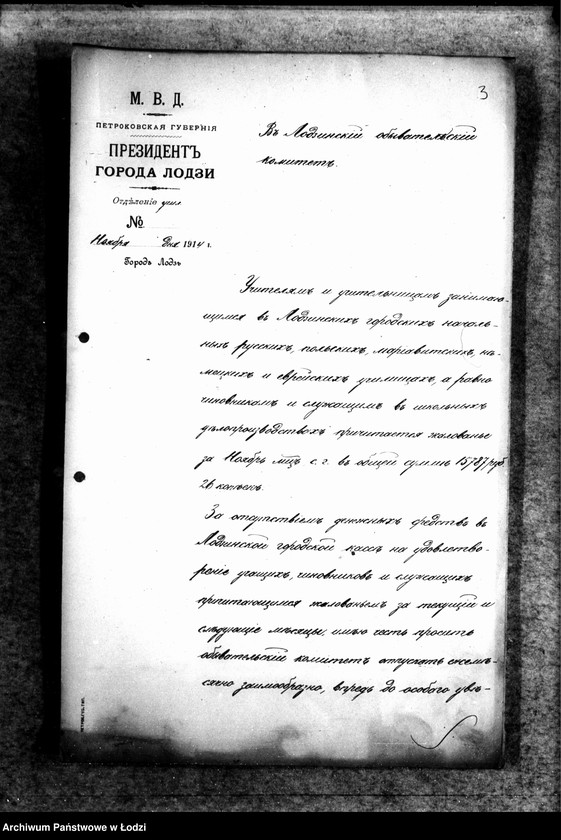 3
М. В. Д.
ПЕТРОКОВСКАЯ ГУБЕРНІЯ
ПРЕЗИДЕНТЪ
ГОРОДА ЛОДЗИ
Отдѣленіе учил.
№
Ноября дня 1914 г.
Городъ Лодзь
Въ Лодзинскій обывательскій
комитетъ.
Учителямъ и учительницамъ занимаю-
щимся въ Лодзинскихъ городскихъ началь-
ныхъ русскихъ, польскихъ, маріавитскихъ, нѣ-
мецкихъ и еврейскихъ училищахъ, а равно
чиновникамъ и служащимъ въ школьныхъ
дѣлопроизводствахъ причитается жалованье
за Ноябрь мѣц с. г. въ общей суммѣ 15787 руб
26 копѣекъ.
За отсутствіемъ денежныхъ средствъ въ
Лодзинской городской кассѣ на удовлетво-
реніе учащихъ, чиновниковъ и служащихъ
причитающимся жалованьемъ за текущій и
слѣдующіе мѣсяцы, имѣю честь просить
обывательскій комитетъ отпускать ежемѣ-
сячно заимообразно, впредь до особаго увѣ-
Archiwum Państwowe w Łodzi